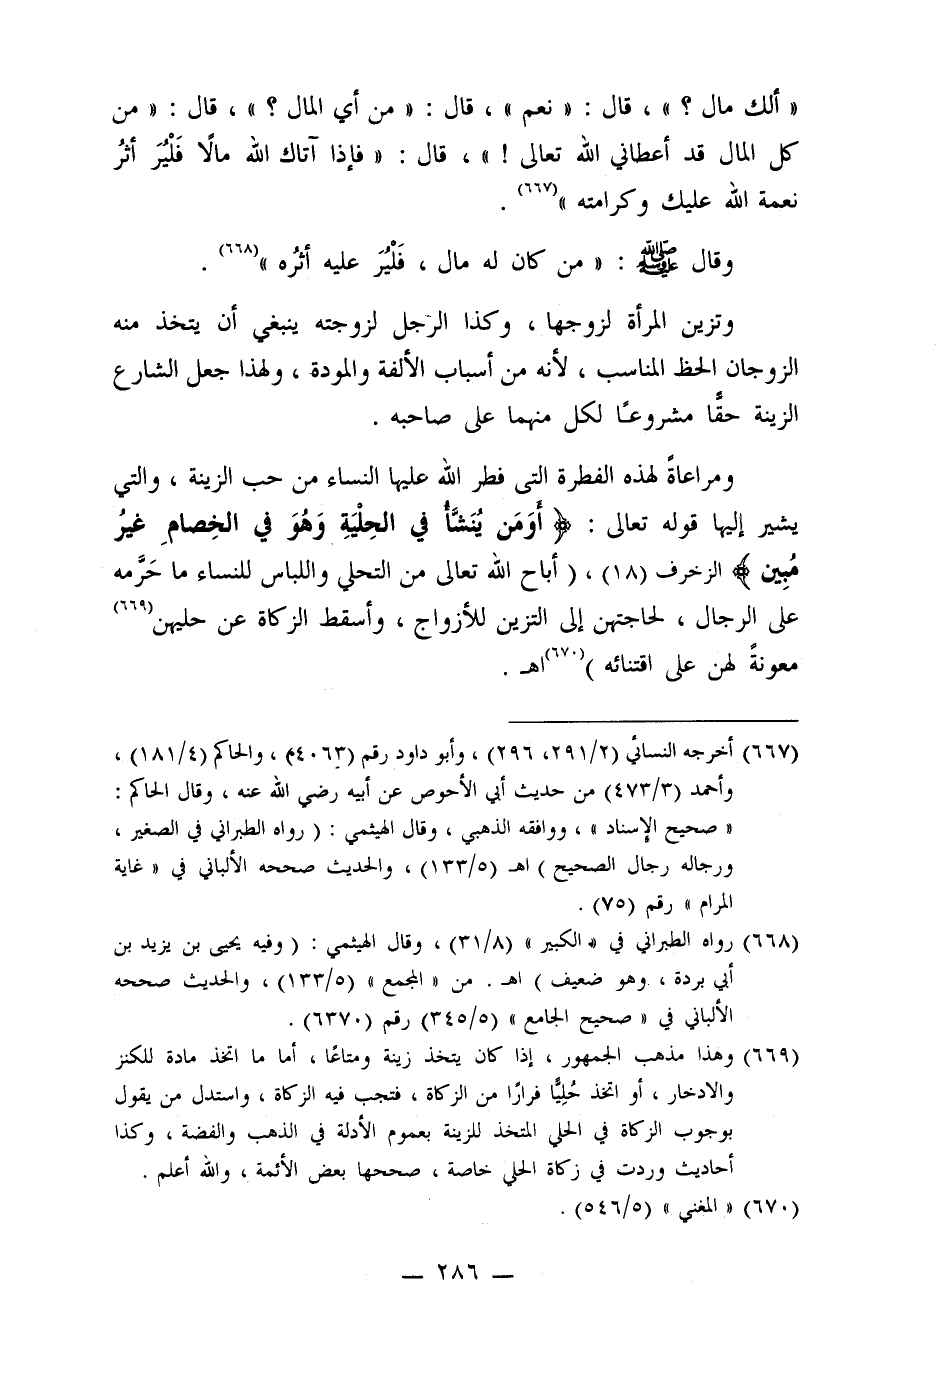 « ألك مال ؟ » ، قال : « نعم » ، قال : « من أي المال ؟ » ، قال : « من
كل المال قد أعطاني الله تعالى ! » ، قال : « فإذا آتاك الله مالًا فَلْيُرَ أثرُ
نعمة الله عليك وكرامته »(٦٦٧) .
وقال ﷺ : « من كان له مال ، فَلْيُرَ عليه أثرُه »(٦٦٨) .
وتزين المرأة لزوجها ، وكذا الرجل لزوجته ينبغي أن يتخذ منه
الزوجان الحظ المناسب ، لأنه من أسباب الألفة والمودة ، ولهذا جعل الشارع
الزينة حقًّا مشروعًا لكل منهما على صاحبه .
ومراعاةً لهذه الفطرة التى فطر الله عليها النساء من حب الزينة ، والتي
يشير إليها قوله تعالى : ﴿ أَوَمَن يُنَشَّأُ في الحِلْيَةِ وَهُوَ في الخِصامِ غيرُ
مُبِين ﴾ الزخرف (١٨) ، ( أباح الله تعالى من التحلي واللباس للنساء ما حَرَّمه
على الرجال ، لحاجتهن إلى التزين للأزواج ، وأسقط الزكاة عن حليهن(٦٦٩)
معونةً لهن على اقتنائه )(٦٧٠)اهـ .
(٦٦٧) أخرجه النسائي (٢٩١/٢، ٢٩٦) ، وأبو داود رقم (٤٠٦٣م ، والحاكم (١٨١/٤) ،
وأحمد (٤٧٣/٣) من حديث أبي الأحوص عن أبيه رضي الله عنه ، وقال الحاكم :
« صحيح الإسناد » ، ووافقه الذهبي ، وقال الهيثمي : ( رواه الطبراني في الصغير ،
ورجاله رجال الصحيح ) اهـ (١٣٣/٥) ، والحديث صححه الألباني في « غاية
المرام » رقم (٧٥) .
(٦٦٨) رواه الطبراني في « الكبير » (٣١/٨) ، وقال الهيثمي : ( وفيه يحيى بن يزيد بن
أبي بردة ، وهو ضعيف ) اهـ . من « المجمع » (١٣٣/٥) ، والحديث صححه
الألباني في « صحيح الجامع » (٣٤٥/٥) رقم (٦٣٧٠) .
(٦٦٩) وهذا مذهب الجمهور ، إذا كان يتخذ زينة ومتاعًا ، أما ما اتخذ مادة للكنز
والادخار ، أو اتخذ حُلِيًّا فرارًا من الزكاة ، فتجب فيه الزكاة ، واستدل من يقول
بوجوب الزكاة في الحلي المتخذ للزينة بعموم الأدلة في الذهب والفضة ، وكذا
أحاديث وردت في زكاة الحلي خاصة ، صححها بعض الأئمة ، والله أعلم .
(٦٧٠) « المغني » (٥٤٦/٥) .
— ٢٨٦ —